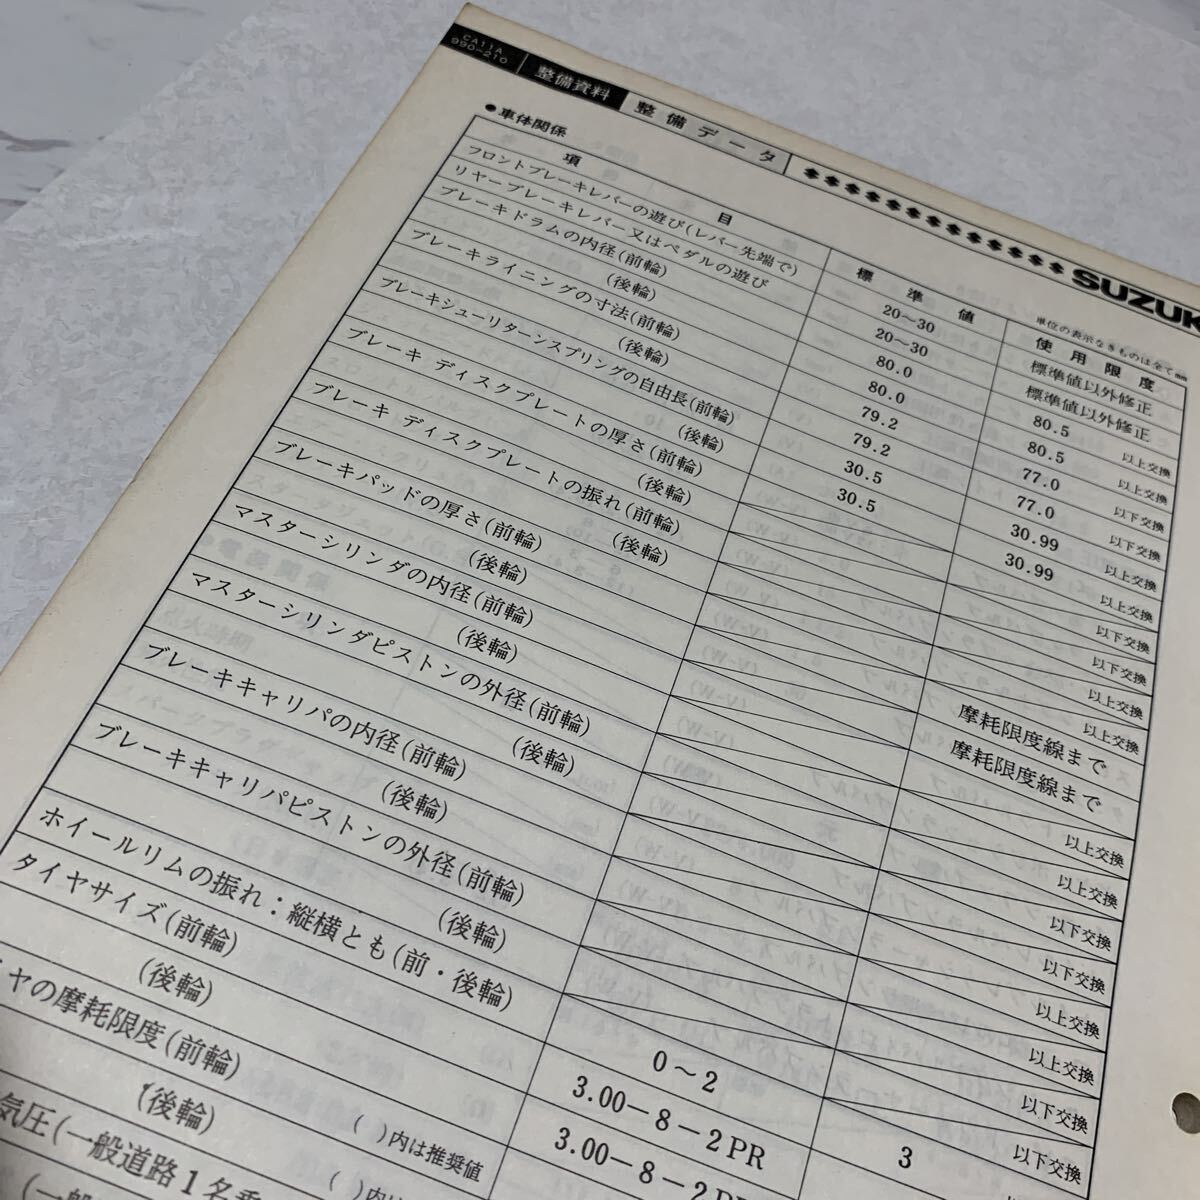 CA11A
990-210
整備資料 整備データ
SUZUK
●車体関係
単位の表示なきものは全てmm
項 目 標準値 使用限度
フロントブレーキレバーの遊び(レバー先端で) 20～30 標準値以外修正
リヤーブレーキレバー又はペダルの遊び 20～30 標準値以外修正
ブレーキドラムの内径(前輪) 80.0 80.5 以上交換
(後輪) 80.0 80.5 以上交換
ブレーキライニングの寸法(前輪) 79.2 77.0 以下交換
(後輪) 79.2 77.0 以下交換
ブレーキシューリターンスプリングの自由長(前輪) 30.5 30.99 以上交換
(後輪) 30.5 30.99 以上交換
ブレーキ ディスクプレートの厚さ(前輪) 以下交換
(後輪) 以下交換
ブレーキ ディスクプレートの振れ(前輪) 以上交換
(後輪) 以上交換
ブレーキパッドの厚さ(前輪) 摩耗限度線まで
(後輪) 摩耗限度線まで
マスターシリンダの内径(前輪) 以上交換
(後輪) 以上交換
マスターシリンダピストンの外径(前輪) 以下交換
(後輪) 以下交換
ブレーキキャリパの内径(前輪) 以上交換
(後輪) 以上交換
ブレーキキャリパピストンの外径(前輪) 以下交換
(後輪) 以下交換
ホイールリムの振れ：縦横とも(前・後輪) 0～2 3
タイヤサイズ(前輪) 3.00－8－2PR
(後輪) 3.00－8－2P
イヤの摩耗限度(前輪)
(後輪)
気圧(一般道路1名乗 ( )内は推奨値
(一般 ( )内は